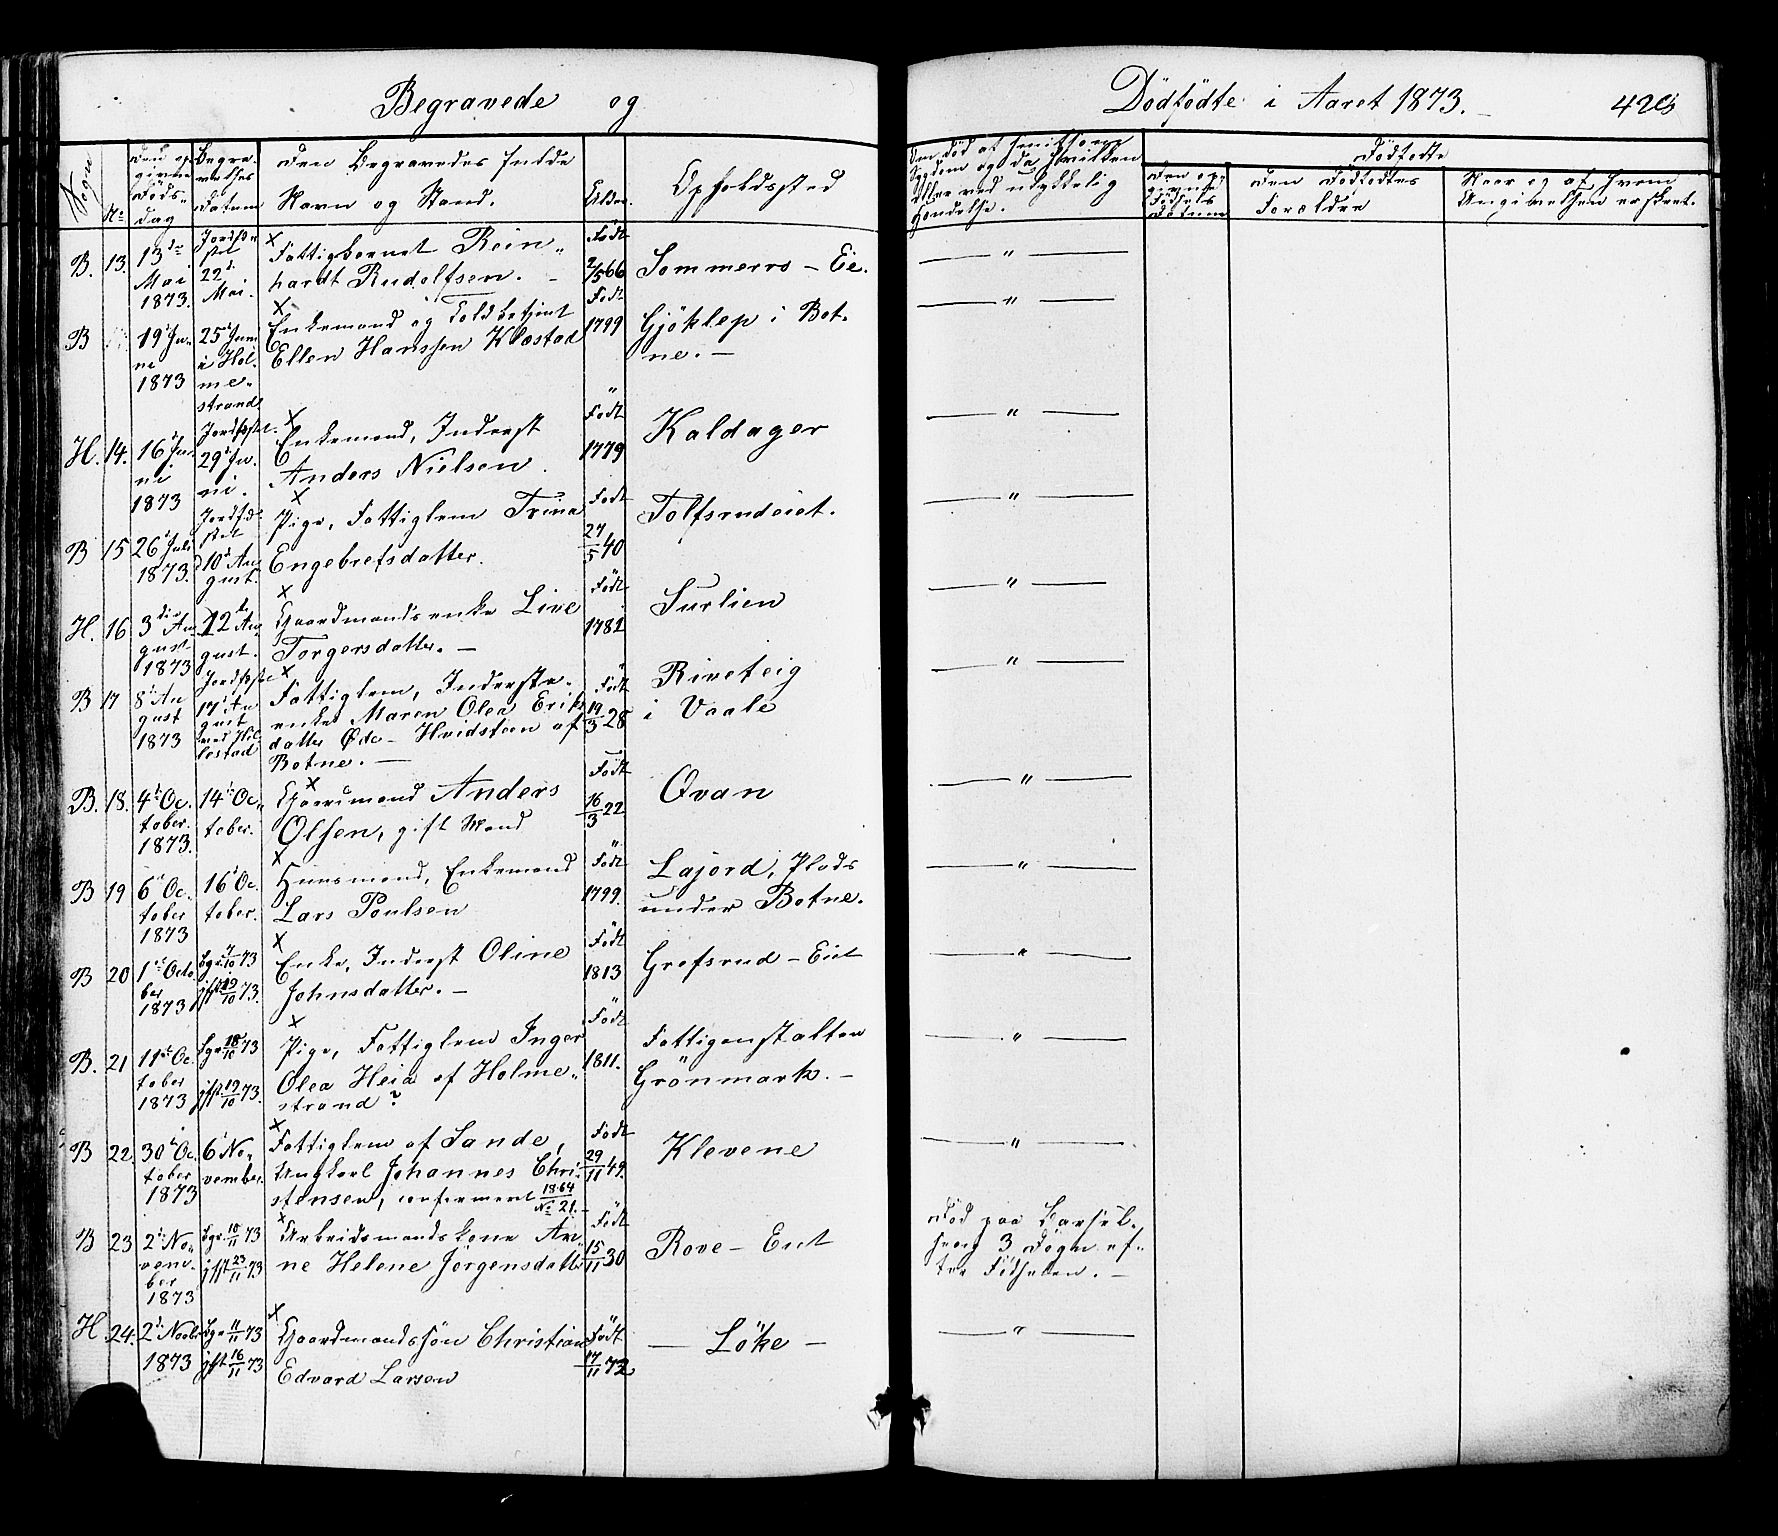 Begravede og Dödfödte i Aaret 1873.
Sogn
No
Den op-
givne
Döds-
dag
Begra-
velses
Datum
Den Begravedes fulde
Navn og Stand.
Alder.
Opholdssted
Den opgivne Födsels Datum
Den Dödfödtes
Forældre
Naar og af hvem
Angivelsen er skeet.
Dödfödte
B. 13. 13de Mai 1873. Jordfæstet 22d Mai. Fattigbarnet Rein-
hardt Rudolfsen. Födt 2/5 66 Sommerro - Eie.
B 19d Juni 1873 25d Juni i Holmestrand Enkemand og Toldbetjent
Ellen Hanssen Klaastad Födt 1799 Gjöklep i Bot-
ne.
H. 14. 16d Juni 1873 Jordfæstet 29d Juni. Enkemand, Inderst
Anders Nielsen. Födt 1779 Kaldager
B 15 26d Juli 1873. Jordfæstet 10d August. Pige, Fattiglem Trina
Engebretsdatter. Födt 27/5 40 Tolfsrudeiet.
H. 16. 3die August 1873 12d August. Gaardmandsenke Live
Torgersdatter. Födt 1781 Surlien
B 17 8d August 1873 Jordfæstet 17d August ved Hillestad Fattiglem, Inderste-
enke Maren Olea Eriks-
datter Øde- Hvidsteen af
Botne. Födt 19/3 28 Riveteig
i Vaale
B. 18. 4d October. 1873. 14d October. Gaardmand Anders
Olsen, gift Mand Födt 16/3 22 Ovan
B 19 6d October 1873 16d October. Huusmand, Enkemand
Lars Poulsen Födt 1799. Lajord, Plads
under Botne.
B 20 1ste October 1873 bgr. 7/10 73 jfst 19/10 73. Enke, Inderst Oline
Johnsdatter. Födt 1813 Grefsrud - Eiet
B. 21 11te October 1873 bgr 18/10 73 jfst 19/10 73. Pige, Fattiglem Inger
Olea Heia af Holme-
strand? Födt 1811. Fattiganstalten
Grönmark.
B 22. 30d October 1873 6d November. Fattiglem af Sande,
Ungkarl Johannes Chri-
stensen, confirmeret 1864 No 21. Födt 29/11 49. Klevene
B 23 2d November 1873 bgr. 10/11 73 jfst 23/11 73 Arbeidsmandskone An-
ne Helene Jörgensdatter Födt 15/11 30 Rove - Eiet Död paa Barsel-
seng 3 Dögn ef-
ter Födselen.
H 24. 2d Novbr 1873 bgr 11/11 73 jfst 16/11 73 Gaardmandssön Christian
Edvard Larsen Födt 17/11 72 Löke